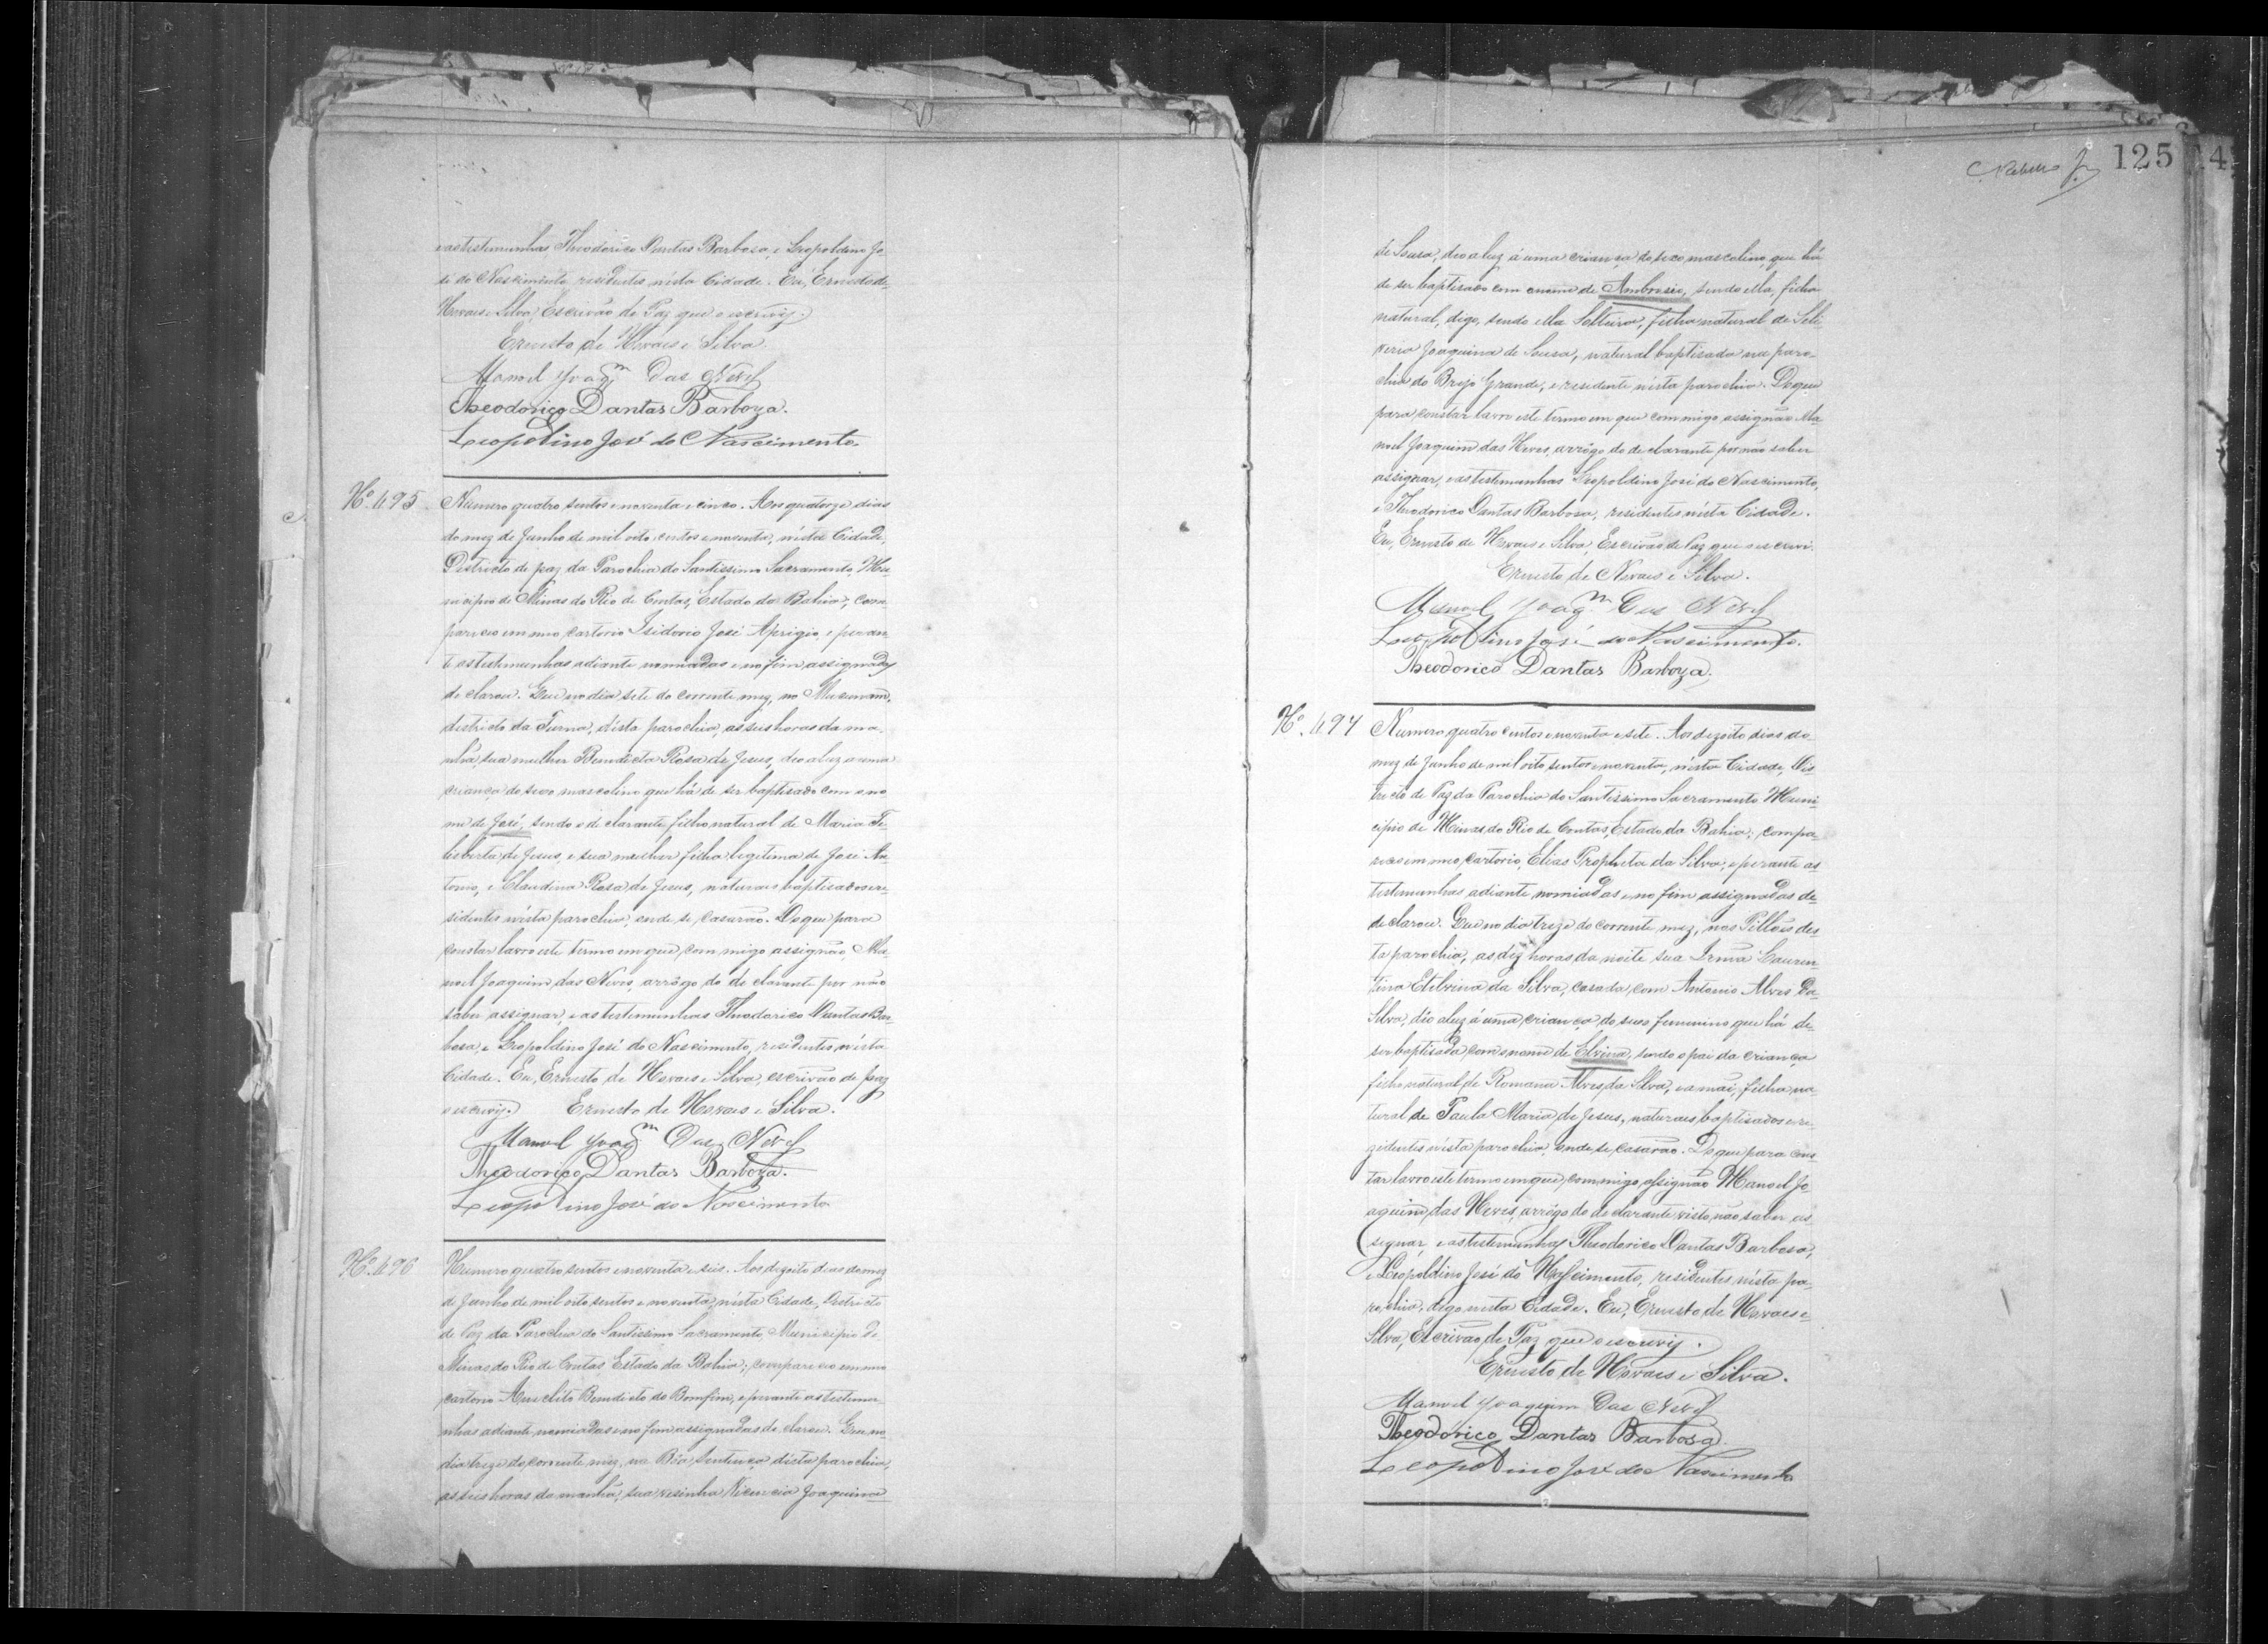 as testemunhas, Theodorico Dantas Barbosa, e Leopoldino Jo-
sé do Nascimento, residentes nésta Cidade. Eu, Ernesto de
Novaes e Silva, Escrivão de Paz que o escrevy.
Ernesto de Novaes e Silva.
Manoel Joaqm das Neves
Theodorico Dantas Barboza.
Leopoldino José do Nascimento.
No. 495. Numero quatro sentos e noventa e cinco. Aos quatorze dias
do mez de Junho de mil oito centos e noventa, nésta Cidade,
Destricto de paz da Parochia do Santissimo Sacramento, Mu-
nicipio de Minas do Rio de Contas, Estado da Bahia, com-
pareceo em meo cartorio Isidorio José Aprigio, e peran-
te as testemunhas adiante nomiadas e no fim assignadas
declarou. Que no dia sete do corrente mez, no
districto da Furna, désta parochia, as seis horas da ma-
nhã, sua mulher Benedicta Rosa de Jesus, deo a luz a uma
criança do sexo mascolino que há de ser baptisado com o no-
me de José, sendo o declarante filho natural de Maria Fe-
lisberta de Jesus, e sua mulher filha legitima de José An-
tonio, e Claudina Rosa de Jesus, naturais baptisados e re-
sidentes nésta parochia, onde se casarão. Do que para
constar lavro este termo em que com migo assignão, Ma-
noel Joaquim das Neves, arrôgo do declarante por não
saber assignar, e as testemunhas Theodorico Dantas Bar-
bosa, e Leopoldino José do Nascimento, residentes nésta
Cidade. Eu, Ernesto de Novaes e Silva, escrivão de paz
o escrevy. Ernesto de Novaes e Silva.
Manoel Joaqm das Neves
Theodorico Dantas Barboza.
Leopoldino José do Nascimento
No. 496 Numero quatro sentos e noventa e seis. Aos dezoito dias do mez
de Junho de mil oito sentos e noventa, nésta Cidade, Destricto
de Paz da Parochia do Santissimo Sacramento, Municipio de
Minas do Rio de Contas, Estado da Bahia; compareceo em meo
cartorio Benedicto do Bomfim, e perante as testemu-
nhas adiante nomiadas e no fim assignadas declarou. Que no
dia treze do corrente mez, na Bôa Sentença, désta parochia,
as seis horas da manhã, sua vesinha Vicencia Joaquina
C. Rebello Jr 125 4
de Sousa, deo a luz á uma criança do sexo mascolino, que há
de ser baptisado com o nome de Ambrosio, sendo ella, filha
natural, digo, sendo ella Solteira, filha natural de Sili-
veria Joaquina de Sousa, natural baptisada na paro-
chia do Brejo Grande, e residente nésta parochia. Do que
para constar lavro este termo em que com migo assignão Ma-
noel Joaquim das Neves, arrôgo do declarante por não saber
assignar, e as testemunhas Leopoldino José do Nascimento,
e Theodorico Dantas Barbosa, residentes nésta Cidade.
Eu, Ernesto de Novaes e Silva, Escrivão de Paz que o escrevi.
Ernesto de Novaes e Silva.
Manoel Joaqm das Neves
Leopoldino José do Nascimento.
Theodorico Dantas Barboza.
No. 497 Numero quatro centos e noventa e sete. Aos dezoito dias do
mez de Junho de mil oito sentos e noventa, nésta Cidade, Dis-
tricto de Paz da Parochia do Santissimo Sacramento, Muni-
cipio de Minas do Rio de Contas, Estado da Bahia; compa-
receo em meo cartorio, Elias Propheta da Silva, e perante as
testemunhas adiante nomiadas e no fim assignadas de-
declarou. Que no dia treze do corrente mez, nos Pillões des-
ta parochia, as dez horas da noite sua Irmã Lauren-
tina Etelvina da Silva, casada com Antonio Alves da
Silva, deo a luz á uma criança do sexo feminino que há de
ser baptisada com o nome de Elvira, sendo o pai da criança
filho natural de Romana Alves da Silva, e a mai, filha na-
tural de Paula Maria de Jesus, naturais baptisados e re-
zidentes nésta parochia, onde se casarão. Do que para cons-
tar lavro este termo em que, com migo assignão Manoel Jo-
aquim das Neves, arrôgo do declarante visto não saber as-
signar, e as testemunhas Theodorico Dantas Barbosa,
e Leopoldino José do Nascimento, residentes nésta pa-
rochia, digo nesta Cidade. Eu, Ernesto de Novaes e
Silva, Escrivão de Paz que o escrevy.
Ernesto de Novaes e Silva.
Manoel Joaquim das Neves
Theodorico Dantas Barbosa
Leopoldino José do Nascimento